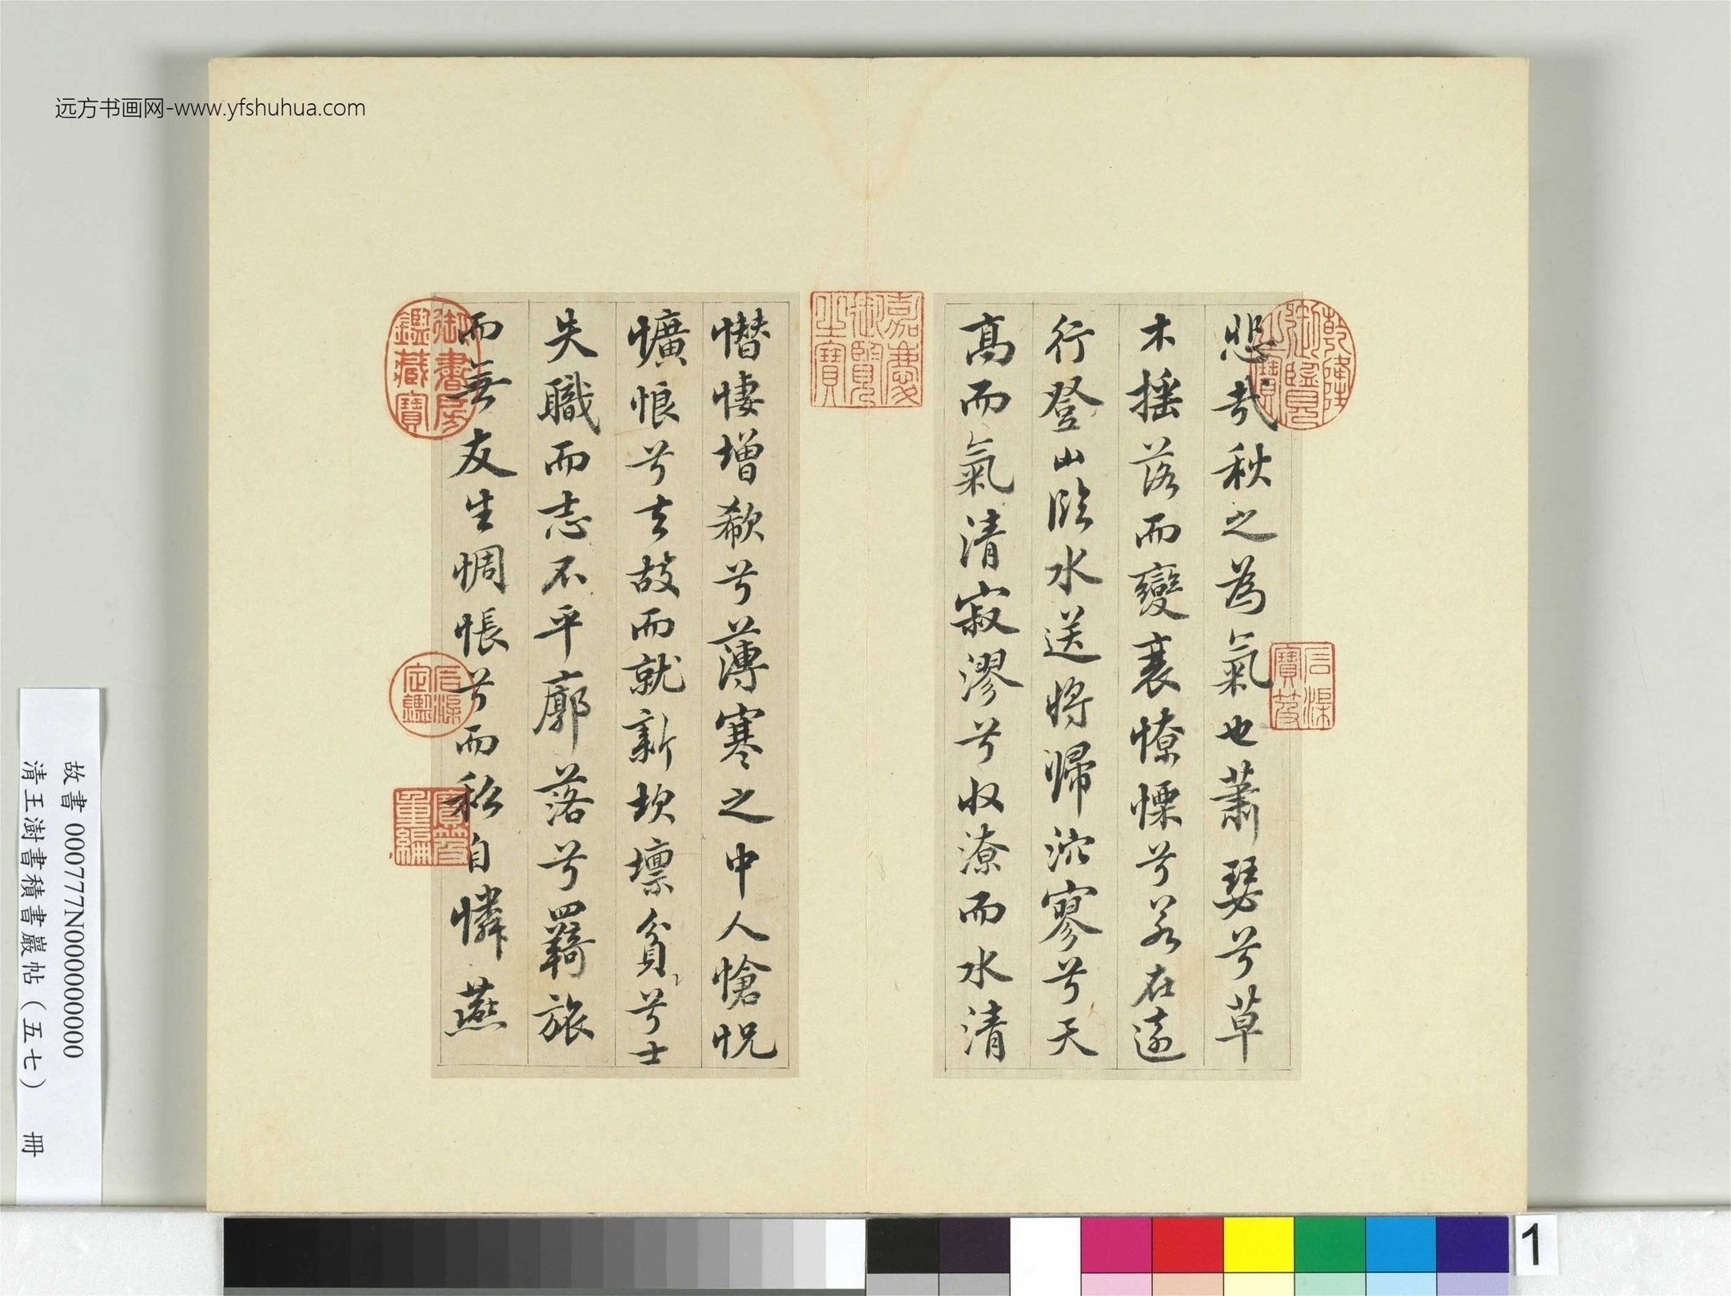 远方书画网-www.yfshuhua.com
悲哉秋之為氣也蕭瑟兮草
木搖落而變衰憭慄兮若在遠
行登山臨水送將歸泬寥兮天
高而氣清寂漻兮收潦而水清
憯悽增欷兮薄寒之中人愴怳
懭悢兮去故而就新坎壈貧兮士
失職而志不平廓落兮羇旅
而無友生惆悵兮而私自憐燕
乾隆御覽之寶
石渠寶笈
嘉慶御覽之寶
御書房鑑藏寶
石渠定鑑
寶笈重編
故書 000777N000000000
清王澍書積書巖帖（五七） 冊
1